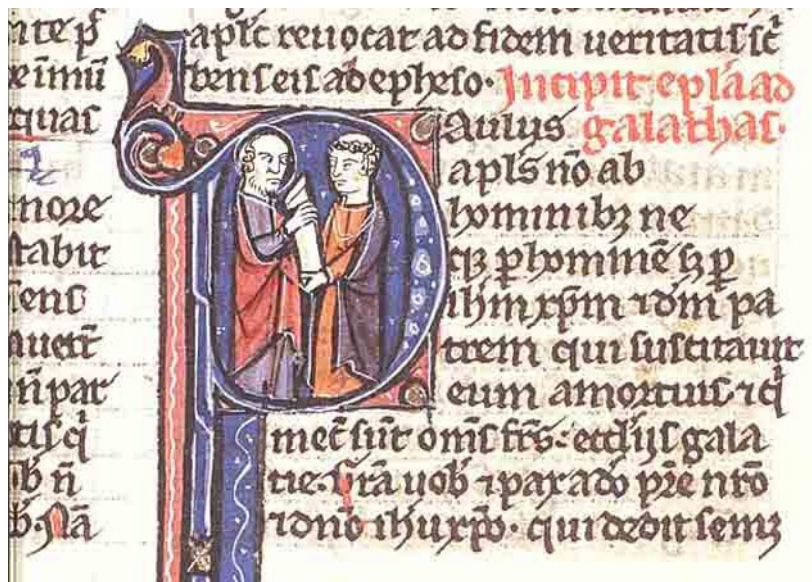 nte
quas
more
stabit
sens
n̄ pat
tis q̄
b n̄
aplīc reuocat ad fidem ueritatis sc̄
bens eis ab epheso. Incipit epl̄a ad
PAulus galathas.
apl̄s nō ab
hominibꝫ ne
qꝫ ꝑ hominē sꝫ ꝑ
ih̄m xp̄m ⁊ dm̄ pa
trem qui suscitauit
eum amortuis ⁊ q̄
mec̄ sūt om̄s fr̄s: eccl̄ijs gala
tie. Grā uob̄ ⁊ pax a dō p̄re nr̄o
⁊ dn̄o ih̄u xp̄o. qui dedit semꝫ